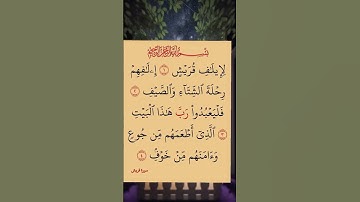 بِسْمِ اللَّهِ الرَّحْمَٰنِ الرَّحِيمِ
لِإِيلَٰفِ قُرَيْشٍ ١ إِۦلَٰفِهِمْ
رِحْلَةَ ٱلشِّتَآءِ وَٱلصَّيْفِ ٢
فَلْيَعْبُدُوا۟ رَبَّ هَٰذَا ٱلْبَيْتِ
٣ ٱلَّذِىٓ أَطْعَمَهُم مِّن جُوعٍ
وَءَامَنَهُم مِّنْ خَوْفٍۭ ٤